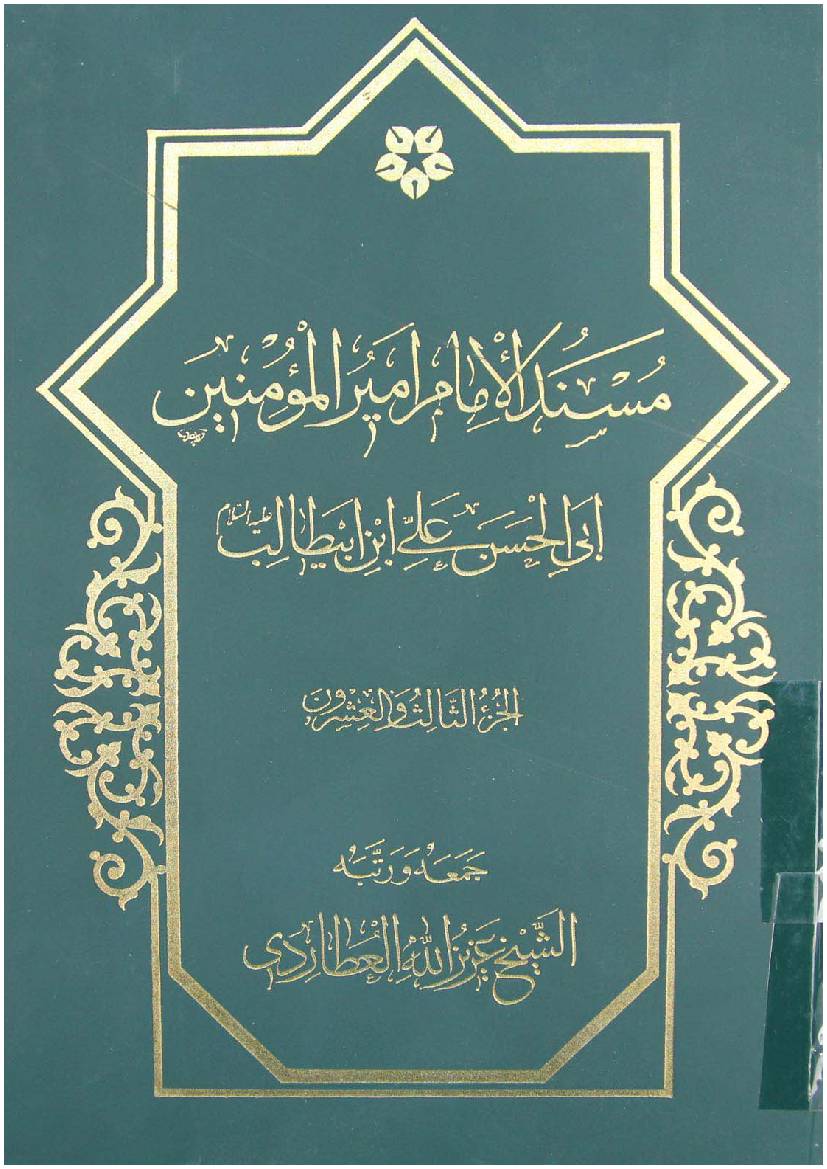 مُسْنَدُ الْإِمَامِ أَمِيرِ الْمُؤْمِنِينَ
أَبِي الْحَسَنِ عَلِيِّ ابْنِ أَبِيطَالِبٍ عليه السلام
الجُزْءُ الثَّالِثُ وَالْعِشْرُونَ
جَمَعَهُ وَرَتَّبَهُ
الشَّيْخُ عَزِيزُ اللَّهِ الْعُطَارِدِي